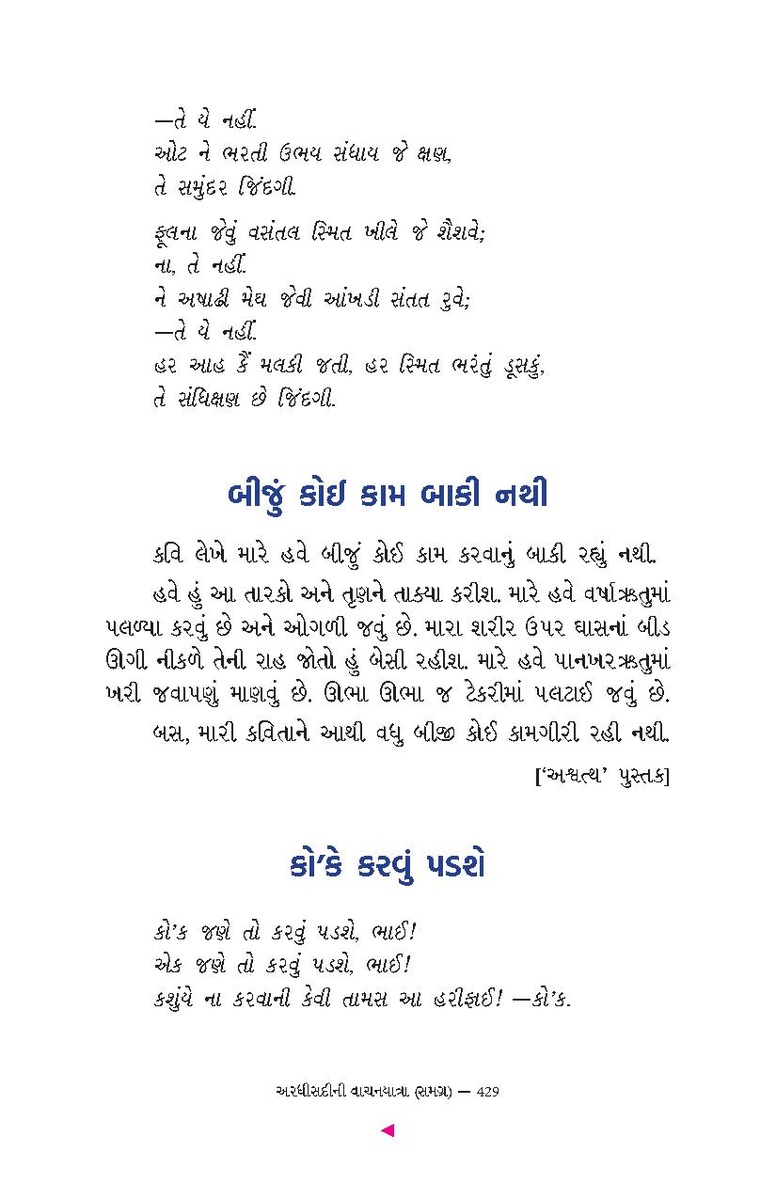 —તે યે નહીં.
ઓટ ને ભરતી ઉભય સંધાય જે ક્ષણ,
તે સમુંદર જિંદગી.
ફૂલના જેવું વસંતલ સ્મિત ખીલે જે શૈશવે;
ના, તે નહીં.
ને અષાઢી મેઘ જેવી આંખડી સંતત રુવે;
—તે યે નહીં.
હર આહ કૈં મલકી જતી, હર સ્મિત ભરંતું ડૂસકું,
તે સંધિક્ષણ છે જિંદગી.
બીજું કોઈ કામ બાકી નથી
કવિ લેખે મારે હવે બીજું કોઈ કામ કરવાનું બાકી રહ્યું નથી.
હવે હું આ તારકો અને તૃણને તાક્યા કરીશ. મારે હવે વર્ષાઋતુમાં
પલળ્યા કરવું છે અને ઓગળી જવું છે. મારા શરીર ઉપર ઘાસનાં બીડ
ઊગી નીકળે તેની રાહ જોતો હું બેસી રહીશ. મારે હવે પાનખરઋતુમાં
ખરી જવાપણું માણવું છે. ઊભા ઊભા જ ટેકરીમાં પલટાઈ જવું છે.
બસ, મારી કવિતાને આથી વધુ બીજી કોઈ કામગીરી રહી નથી.
[‘અશ્વત્થ’ પુસ્તક]
કો’કે કરવું પડશે
કો’ક જણે તો કરવું પડશે, ભાઈ!
એક જણે તો કરવું પડશે, ભાઈ!
કશુંયે ના કરવાની કેવી તામસ આ હરીફાઈ! —કો’ક.
અરધીસદીની વાચનયાત્રા (સમગ્ર) — 429